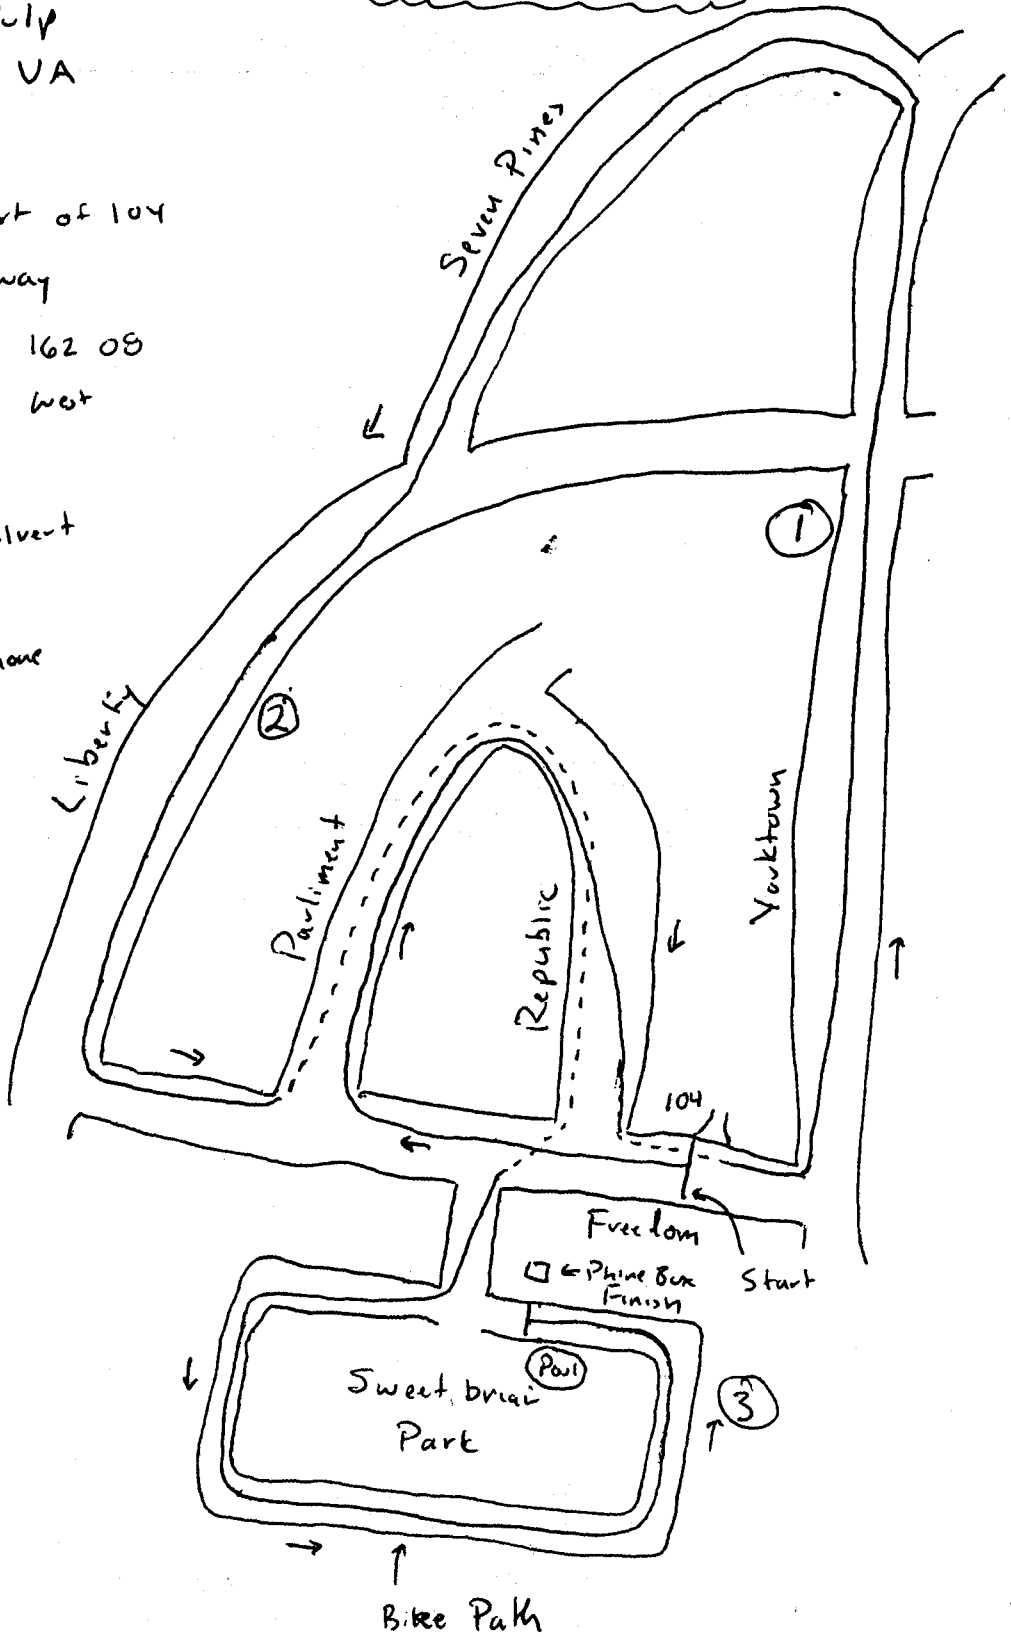 VA
of 104
way
162 08
West
Seven Pines
1
2
Liberty
Parliment
Republic
Yorktown
104
Freedom
← Phone Box
Finish
Start
Pool
Sweet briar
Park
3
Bike Path